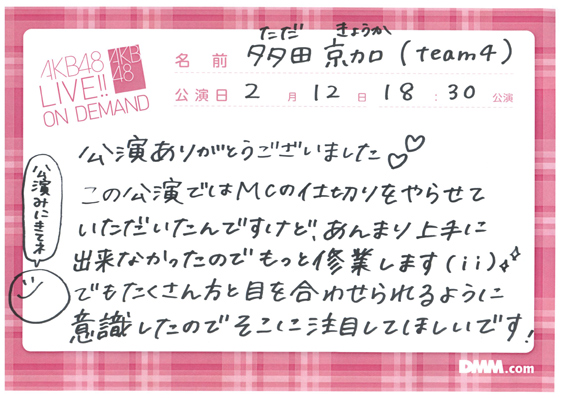 AKB48
LIVE!!
ON DEMAND
AKB
48
ただ きょうか
名前 多田 京加 (team4)
公演日 2 月 12 日 18 : 30 公演
公演ありがとうございました♡♡
この公演ではMCの仕切りをやらせて
いただいたんですけど、あんまり上手に
出来なかったのでもっと修業します(ii)
でもたくさん方と目を合わせられるように
意識したのでそこに注目してほしいです!
公演みにきてネ
DMM.com